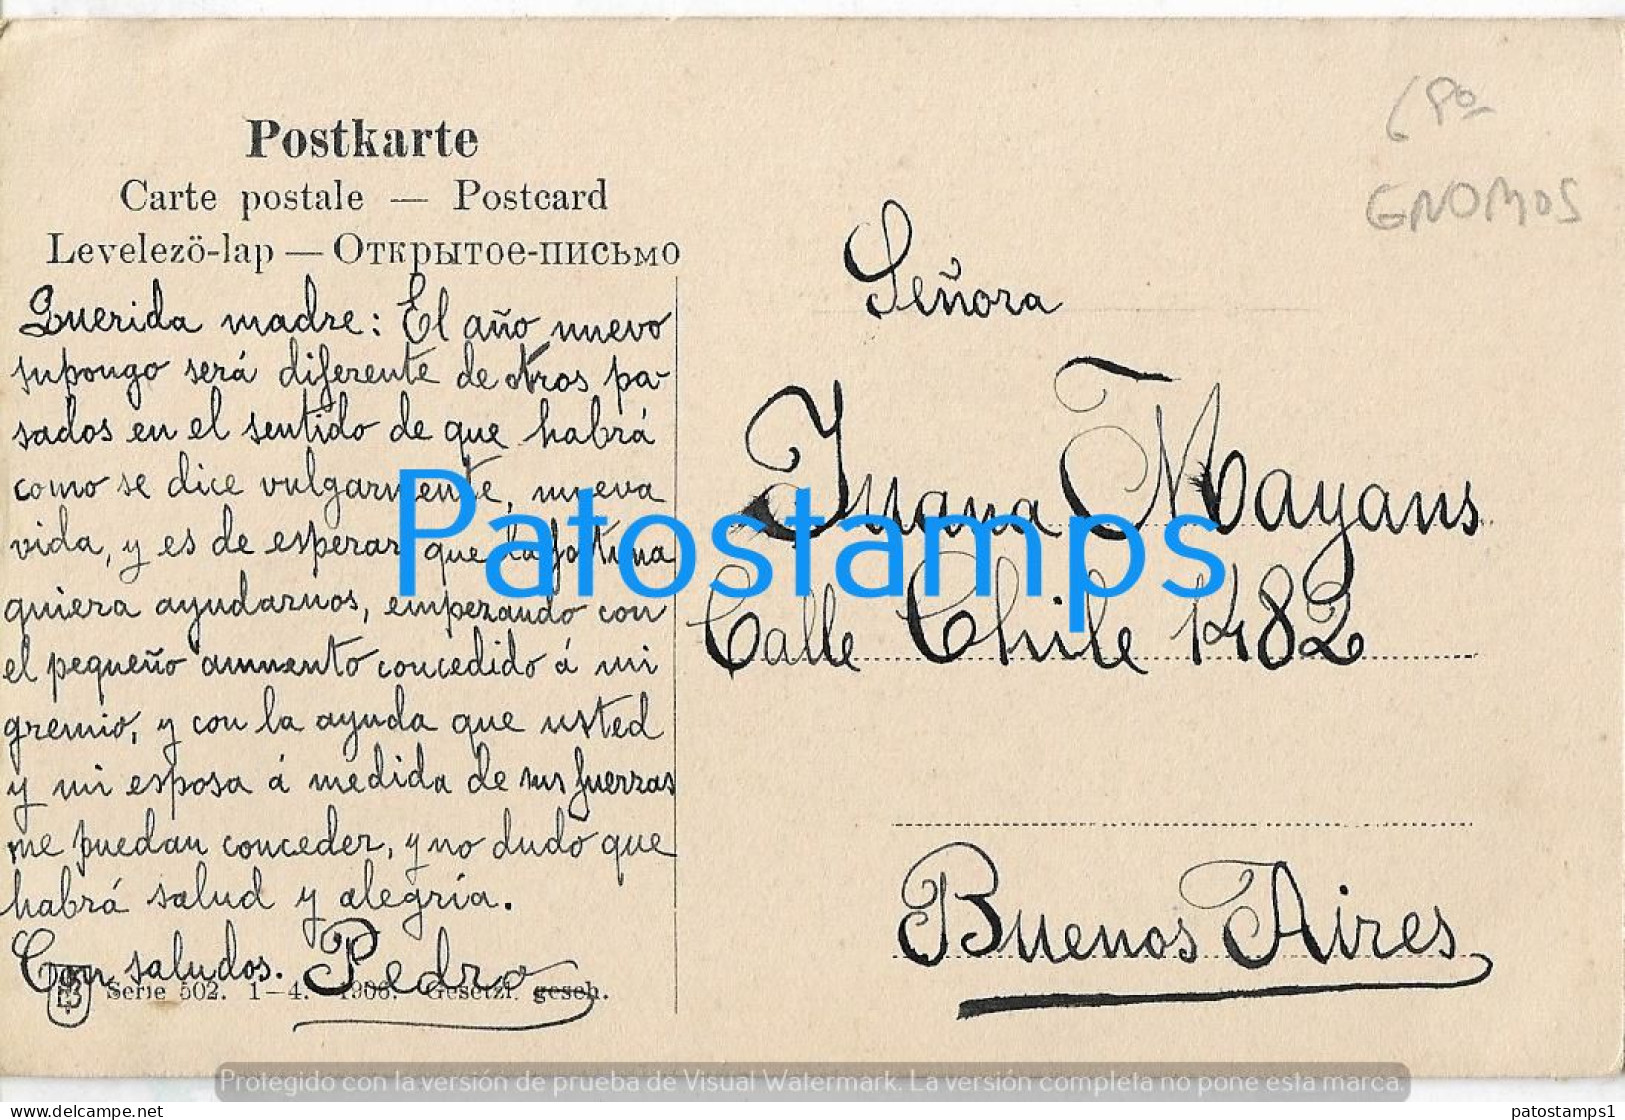 Postkarte
Carte postale — Postcard
Levelezö-lap — Открытое-письмо
Querida madre: El año nuevo
supongo será diferente de otros pa-
sados en el sentido de que habrá
como se dice vulgarmente, nueva
vida, y es de esperar que la fortuna
quiera ayudarnos, empezando con
el pequeño aumento concedido á mi
gremio, y con la ayuda que usted
y mi esposa á medida de sus fuerzas
me puedan conceder, y no dudo que
habrá salud y alegría.
Con saludos. Pedro
Serie 502. 1—4. 1906. Gesetzl. gesch.
GNOMOS
Señora
Juana Mayans
Calle Chile 1482
Buenos Aires
Patostamps
Protegido con la versión de prueba de Visual Watermark. La versión completa no pone esta marca.
https://www.delcampe.net
patostamps1